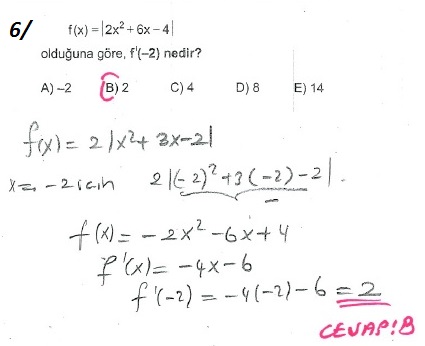 6/ f(x) = |2x² + 6x – 4|
olduğuna göre, f'(–2) nedir?
A) –2 B) 2 C) 4 D) 8 E) 14
f(x) = 2|x²+3x-2|
x = -2 için 2|(-2)²+3(-2)-2|.
-
f(x) = -2x²-6x+4
f'(x) = -4x-6
f'(-2) = -4(-2)-6 = 2
CEVAP!B